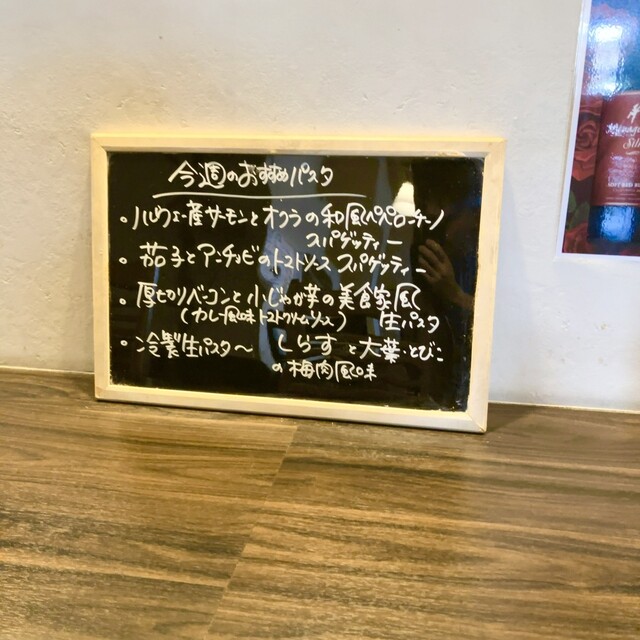 今週のおすすめパスタ
・ノルウェー産サーモンとオクラの和風ペペロンチーノ
スパゲッティー
・茄子とアンチョビのトマトソース スパゲッティー
・厚切りベーコンと小じゃが芋の美食家風
(カレー風味トマトクリームソース) 生パスタ
・冷製生パスタ〜 しらすと大葉・とびこ
の梅肉風味